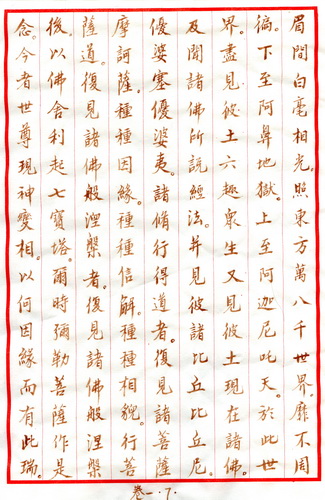 眉間白毫相光。照東方萬八千世界。靡不周
徧。下至阿鼻地獄。上至阿迦尼吒天。於此世
界。盡見彼土六趣眾生又見彼土現在諸佛。
及聞諸佛所說經法。并見彼諸比丘比丘尼。
優婆塞優婆夷。諸修行得道者。復見諸菩薩
摩訶薩。種種因緣。種種信解。種種相貌。行菩
薩道。復見諸佛般涅槃者。復見諸佛般涅槃
後以佛舍利起七寶塔。爾時彌勒菩薩作是
念。今者世尊現神變相。以何因緣而有此瑞。
卷一.7.